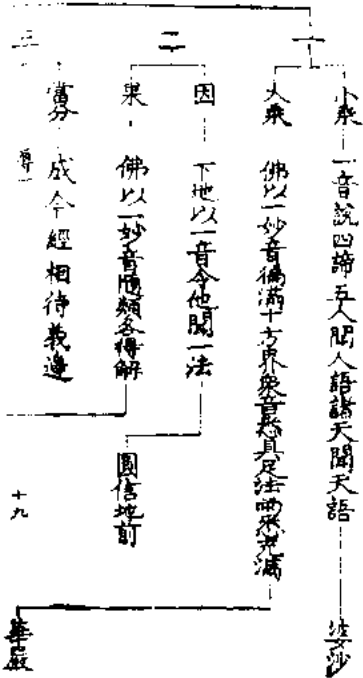 一
小乘 一音說四諦五人聞人語諸天聞天語 婆沙
大乘 佛以一妙音徧滿十方界衆音悉具足法雨衆充滿 華嚴
二
因 下地以一音令他聞一法 圓信地前
果 佛以一妙音隨類各得解
三
當分 成今經相待義邊
十九